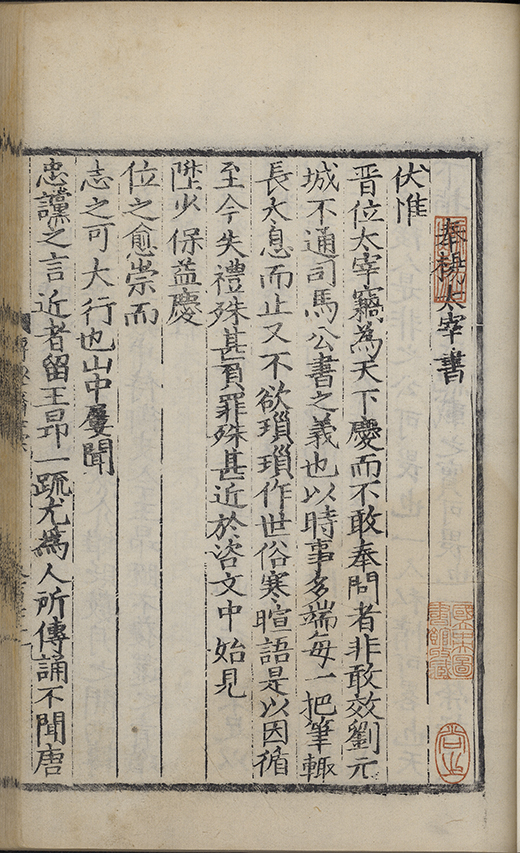 奉楊太宰書
伏惟
晉位太宰竊為天下慶而不敢奉問者非敢效劉元
城不通司馬公書之義也以時事多端每一把筆輙
長太息而止又不欲瑣瑣作世俗寒暄語是以因循
至今失禮殊甚負罪殊甚近於咨文中始見
陞少保益慶
位之愈崇而
志之可大行也山中屢聞
忠讜之言近者留王昂一疏尤爲人所傳誦不聞唐
國立中央圖
書館收藏